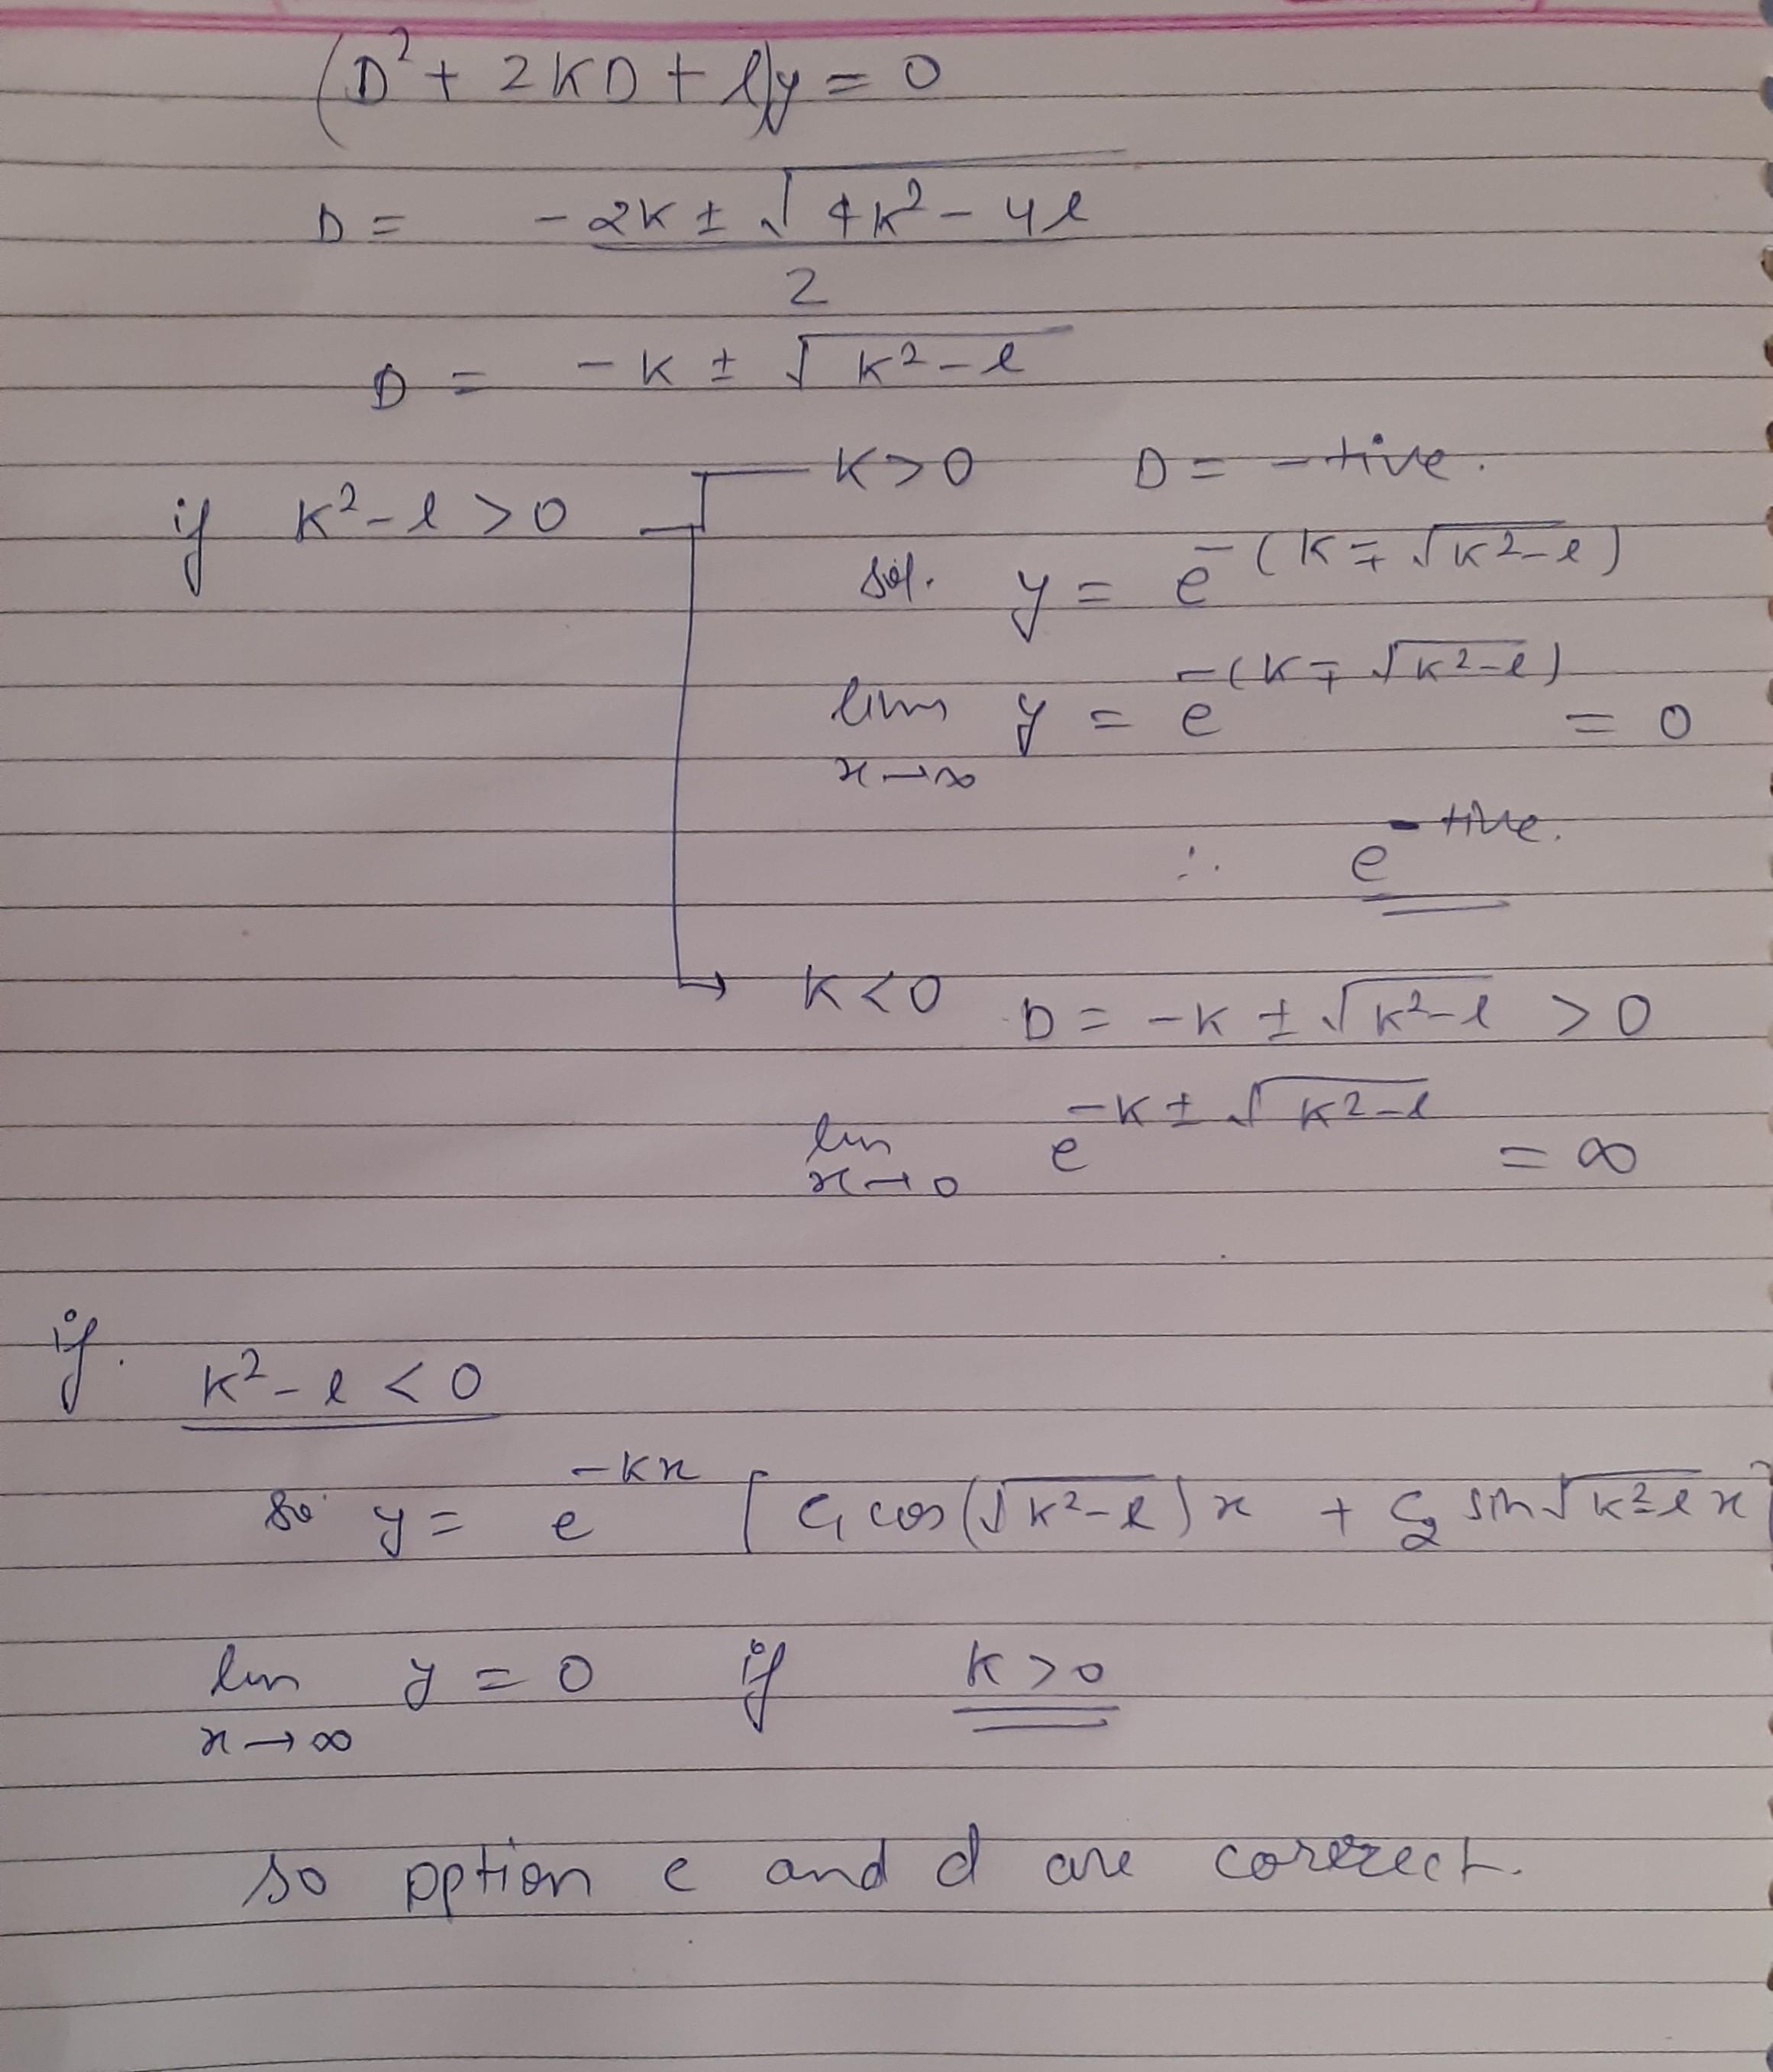 (D² + 2KD + l)y = 0
D = -2K ± √4K² - 4l
2
D = -K ± √K² - l
if K² - l > 0
K > 0 D = -tive.
sol. y = e^-(K ∓ √K² - l)
lim y = e^-(K ∓ √K² - l) = 0
x → ∞
∴ e^-tive.
K < 0 D = -K ± √K² - l > 0
lim e^-K ± √K² - l = ∞
x → 0
if K² - l < 0
so y = e^-Kx [C₁ cos(√K² - l)x + C₂ sin√K² - l x]
lim y = 0 if K > 0
x → ∞
so option c and d are correct.